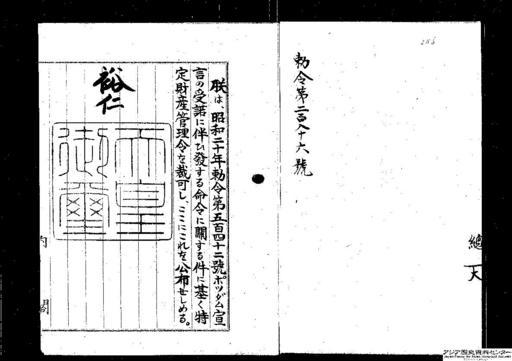 286
勅令第二百八十六號
總
天
朕は、昭和二十年勅令第五百四十二號ポツダム宣
言の受諾に伴ひ發する命令に關する件に基く特
定財産管理令を裁可し、ここにこれを公布せしめる。
裕仁
天皇
御璽
内
閣
アジア歴史資料センター